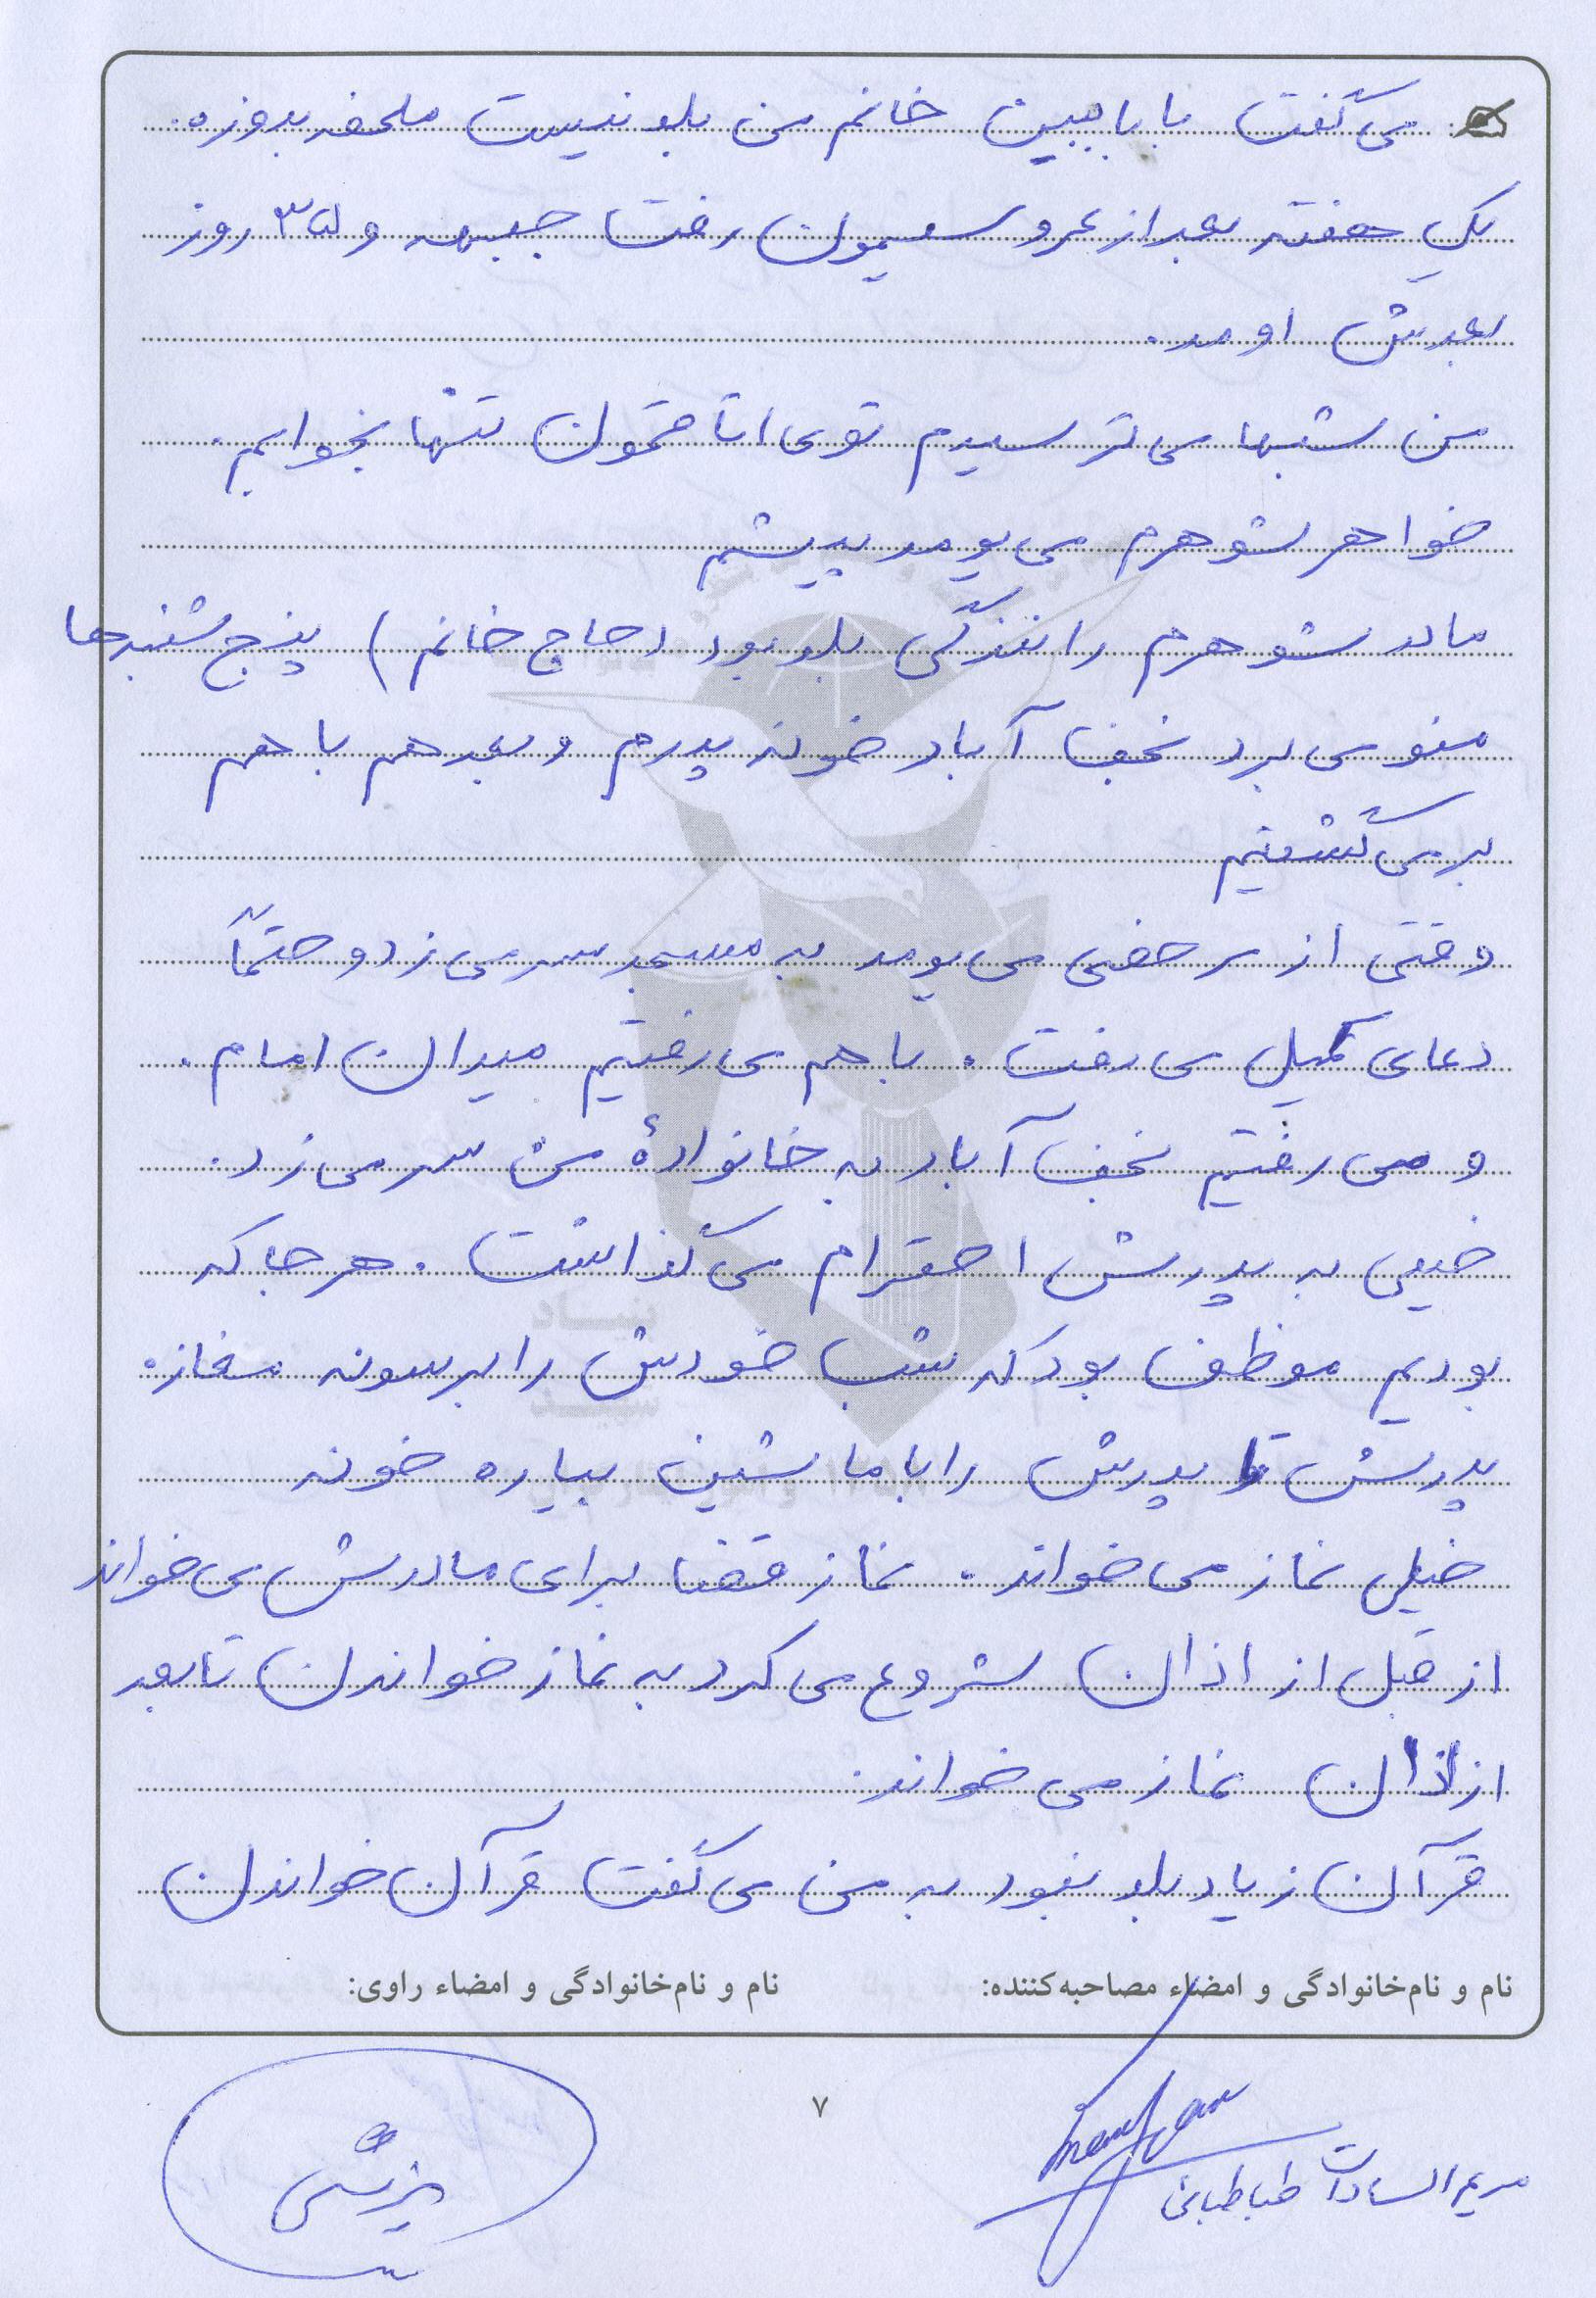 می گفت بابا ببین خانم من بلد نیست ملحفه بدوزه.
یک هفته بعد از عروسیمون رفت جبهه و ۳۵ روز
بعدش اومد.
من شبها می ترسیدم توی اتاقمون تنها بخوابم.
خواهر شوهرم می یومد پیشم
مادر شوهرم رانندگی بلد بود (حاج خانم) پنج شنبه ها
منو می برد نجف آباد خونه پدرم و بعد هم با هم
بر می گشتیم
وقتی از مرخصی می یومد به مسجد سر می زد و حتماً
دعای کمیل می رفت. با هم می رفتیم میدان امام.
و می رفتیم نجف آباد به خانوادهٔ من سر می زد.
خیلی به پدرش احترام می گذاشت. هر جا که
بودیم موظف بود که شب خودش را برسونه مغازه
پدرش تا پدرش را با ماشین بیاره خونه
خیلی نماز می خواند. نماز قضا برای مادرش می خواند
از قبل از اذان شروع می کرد به نماز خواندن تا بعد
از اذان نماز می خواند.
قرآن زیاد بلد نبود به من می گفت قرآن خواندن
نام و نام‌خانوادگی و امضاء مصاحبه‌کننده: نام و نام‌خانوادگی و امضاء راوی:
۷
مریم السادات طباطبائی